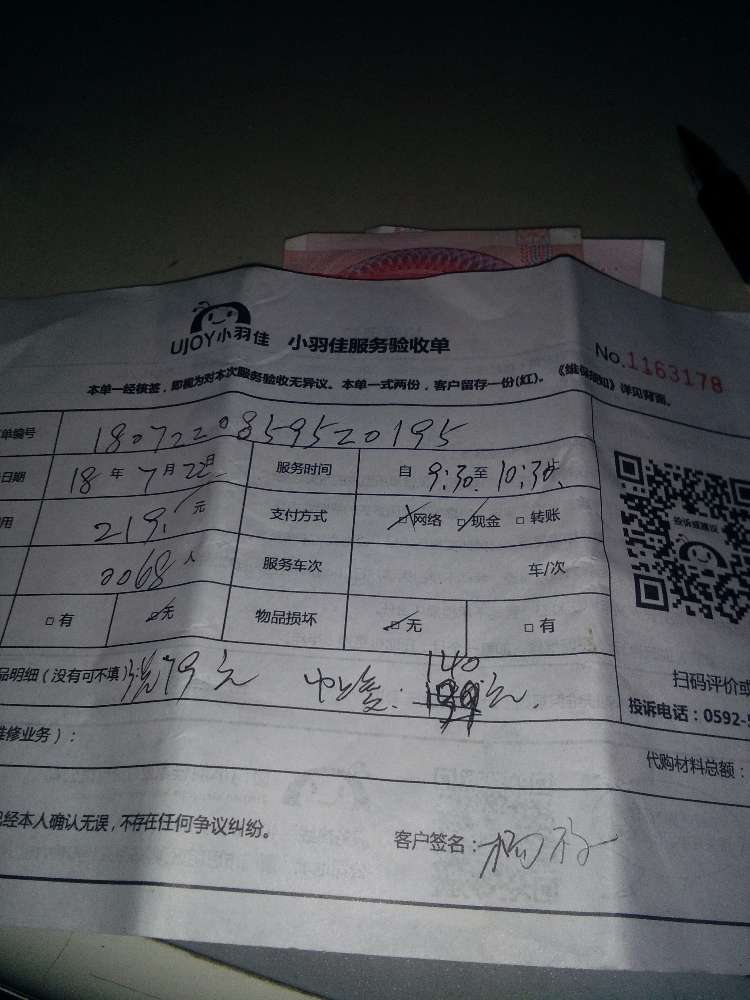 UJOY小羽佳 小羽佳服务验收单 No.1163178
本单一经核签，即视为对本次服务验收无异议。本单一式两份，客户留存一份(红)。《维保须知》详见背面。
单编号 1807220859520195
日期 18年7月22日 服务时间 自9:30至10:30止
用 219.元 支付方式 □网络 □现金 □转账
投诉或建议
0068人 服务车次 车/次
□有 □无 物品损坏 □无 □有
品明细（没有可不填） 洗79元 140元.
扫码评价或
投诉电话：0592-5
维修业务）： 代购材料总额：
已经本人确认无误，不存在任何争议纠纷。 客户签名：